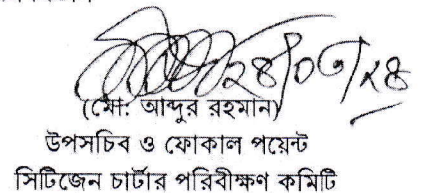 ২৪/০৩/২৪
(মো: আব্দুর রহমান)
উপসচিব ও ফোকাল পয়েন্ট
সিটিজেন চার্টার পরিবীক্ষণ কমিটি